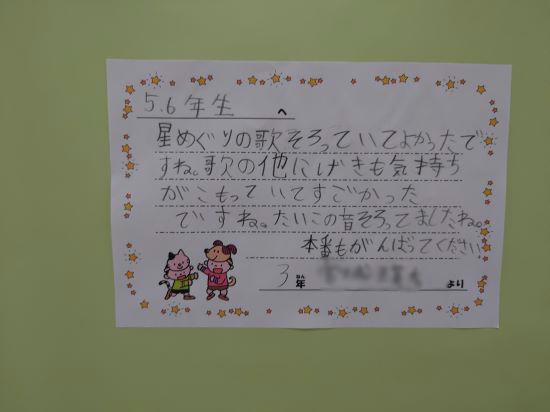 5.6年生 へ
星めぐりの歌そろっていてよかったで
すね。歌の他にげきも気持ち
がこもっていてすごかった
ですね。たいこの音そろってましたね。
本番もがんばってください
3年 より
ねん